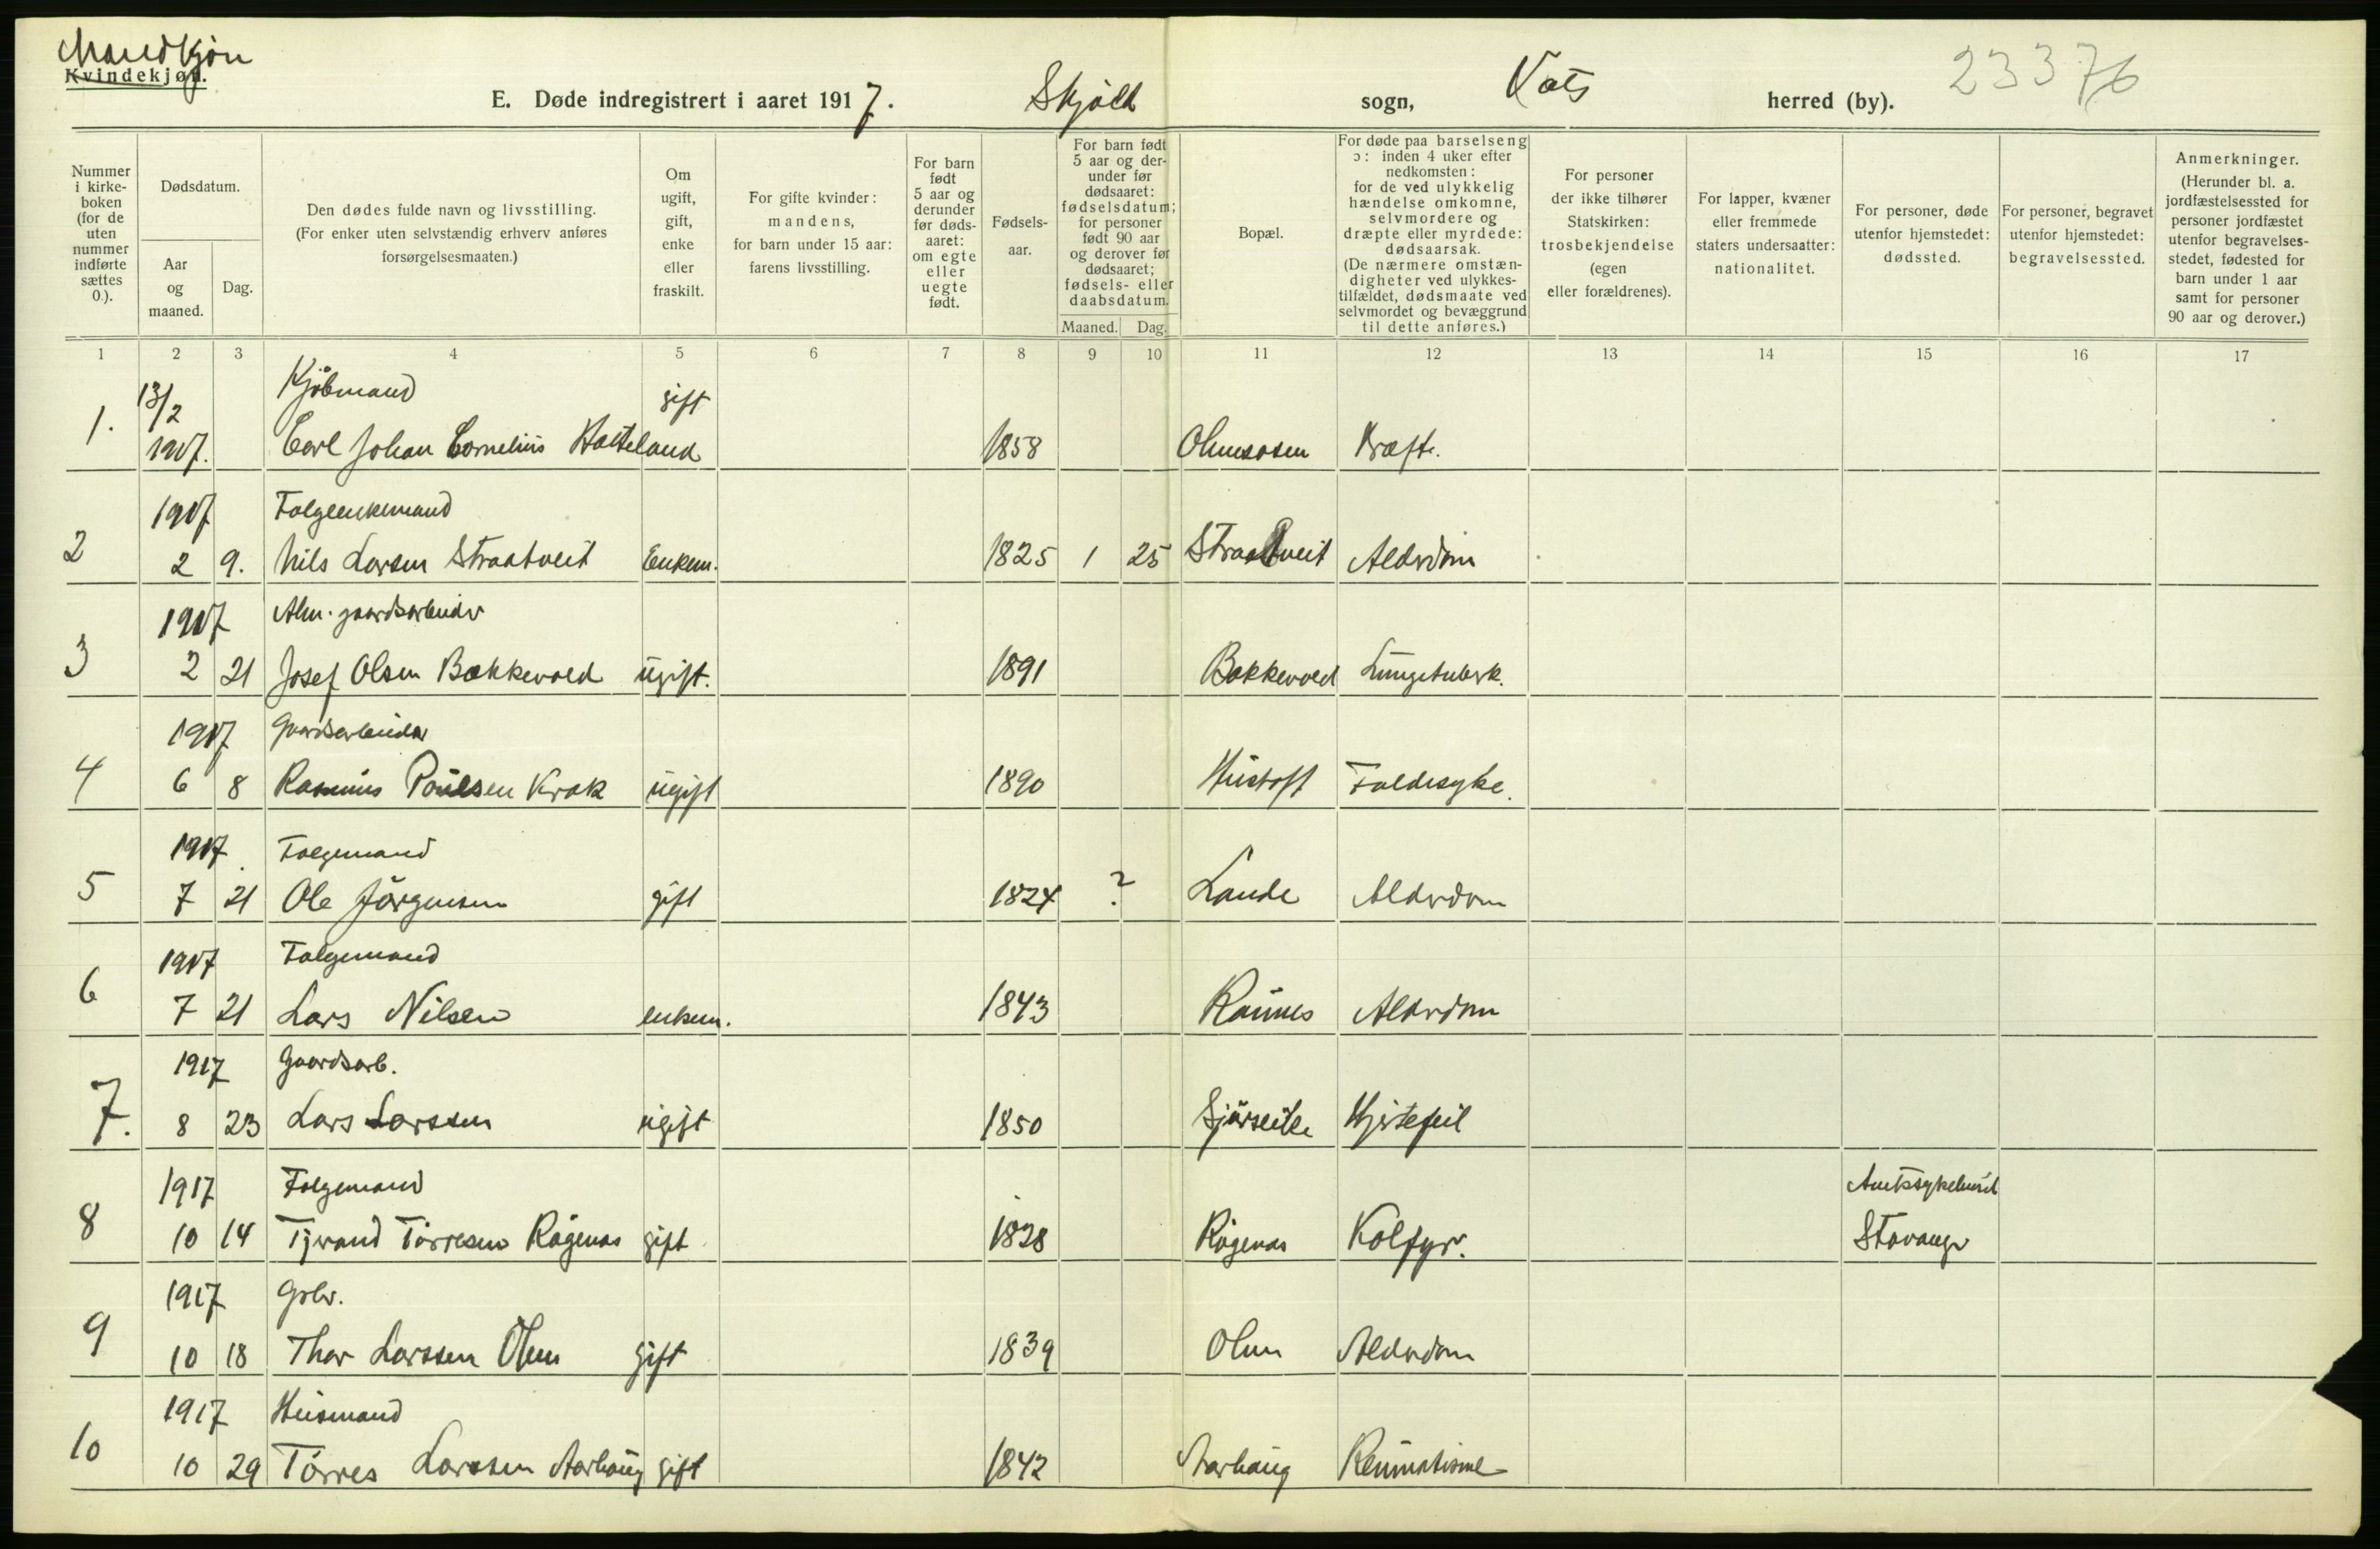 Mandkjøn
Kvindekjøn.
E. Døde indregistrert i aaret 1917. Skjold sogn, Vats herred (by). 23376
Nummer i kirke- boken (for de uten nummer indførte sættes 0.).
Dødsdatum.
Aar og maaned.
Dag.
Den dødes fulde navn og livsstilling. (For enker uten selvstændig erhverv anføres forsørgelsesmaaten.)
Om ugift, gift, enke eller fraskilt.
For gifte kvinder: mandens, for barn under 15 aar: farens livsstilling.
For barn født 5 aar og derunder før døds- aaret: om egte eller uegte født.
Fødsels- aar.
For barn født 5 aar og der- under før dødsaaret: fødselsdatum; for personer født 90 aar og derover før dødsaaret; fødsels- eller daabsdatum.
Maaned. Dag.
Bopæl.
For døde paa barselseng ɔ: inden 4 uker efter nedkomsten: for de ved ulykkelig hændelse omkomne, selvmordere og dræpte eller myrdede: dødsaarsak. (De nærmere omstæn- digheter ved ulykkes- tilfældet, dødsmaate ved selvmordet og bevæggrund til dette anføres.)
For personer der ikke tilhører Statskirken: trosbekjendelse (egen eller forældrenes).
For lapper, kvæner eller fremmede staters undersaatter: nationalitet.
For personer, døde utenfor hjemstedet: dødssted.
For personer, begravet utenfor hjemstedet: begravelsessted.
Anmerkninger. (Herunder bl. a. jordfæstelsessted for personer jordfæstet utenfor begravelses- stedet, fødested for barn under 1 aar samt for personer 90 aar og derover.)
1 2 3 4 5 6 7 8 9 10 11 12 13 14 15 16 17
13/2 Kjöbmand gift
1. 1917. Carl Johan Cornelius Hatteland 1858 Ølmsosen Kræft.
1917 Folgeenkemand
2 2 9. Nils Larsen Straatveit Enkem. 1825 1 25 Straatveit Alderdom
1917 Alm. gaardsarbeider
3 2 21 Josef Olsen Bakkevold ugift. 1891 Bakkevold Lungetuberk.
1917 Gaardsarbeider
4 6 8 Rasmus Poulsen Krak ugift 1890 Hustoft Faldesyke.
1917 Folgemand
5 7 21 Ole Jörgensen gift 1824 ? Lande Alderdom
1917 Folgemand
6 7 21 Lars Nilsen enkem. 1843 Raunes Alderdom
1917 Gaardsarb.
7. 8 23 Lars Larssen ugift 1850 Hjertefeil
1917 Folgemand Amtssykehuset
8 10 14 Tjerand Törresen Rögenas gift 1828 Rögenas Stavanger
1917 Gbr.
9 10 18 Thor Larssen Ølm gift 1839 Ølm Alderdom
1917 Husmand
10 10 29 Törres Larssen Aarhaug gift 1842 Aarhaug Reumatisme